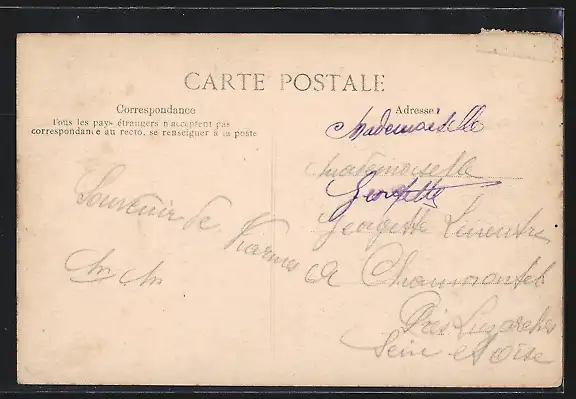 CARTE POSTALE
Correspondance
Tous les pays étrangers n'acceptent pas
correspondance au recto, se renseigner à la poste
Souvenir de
Adresse
Mademoiselle
Mademoiselle
Georgette
Georgette
a Chaumontel
Près Luzarches
Seine et Oise